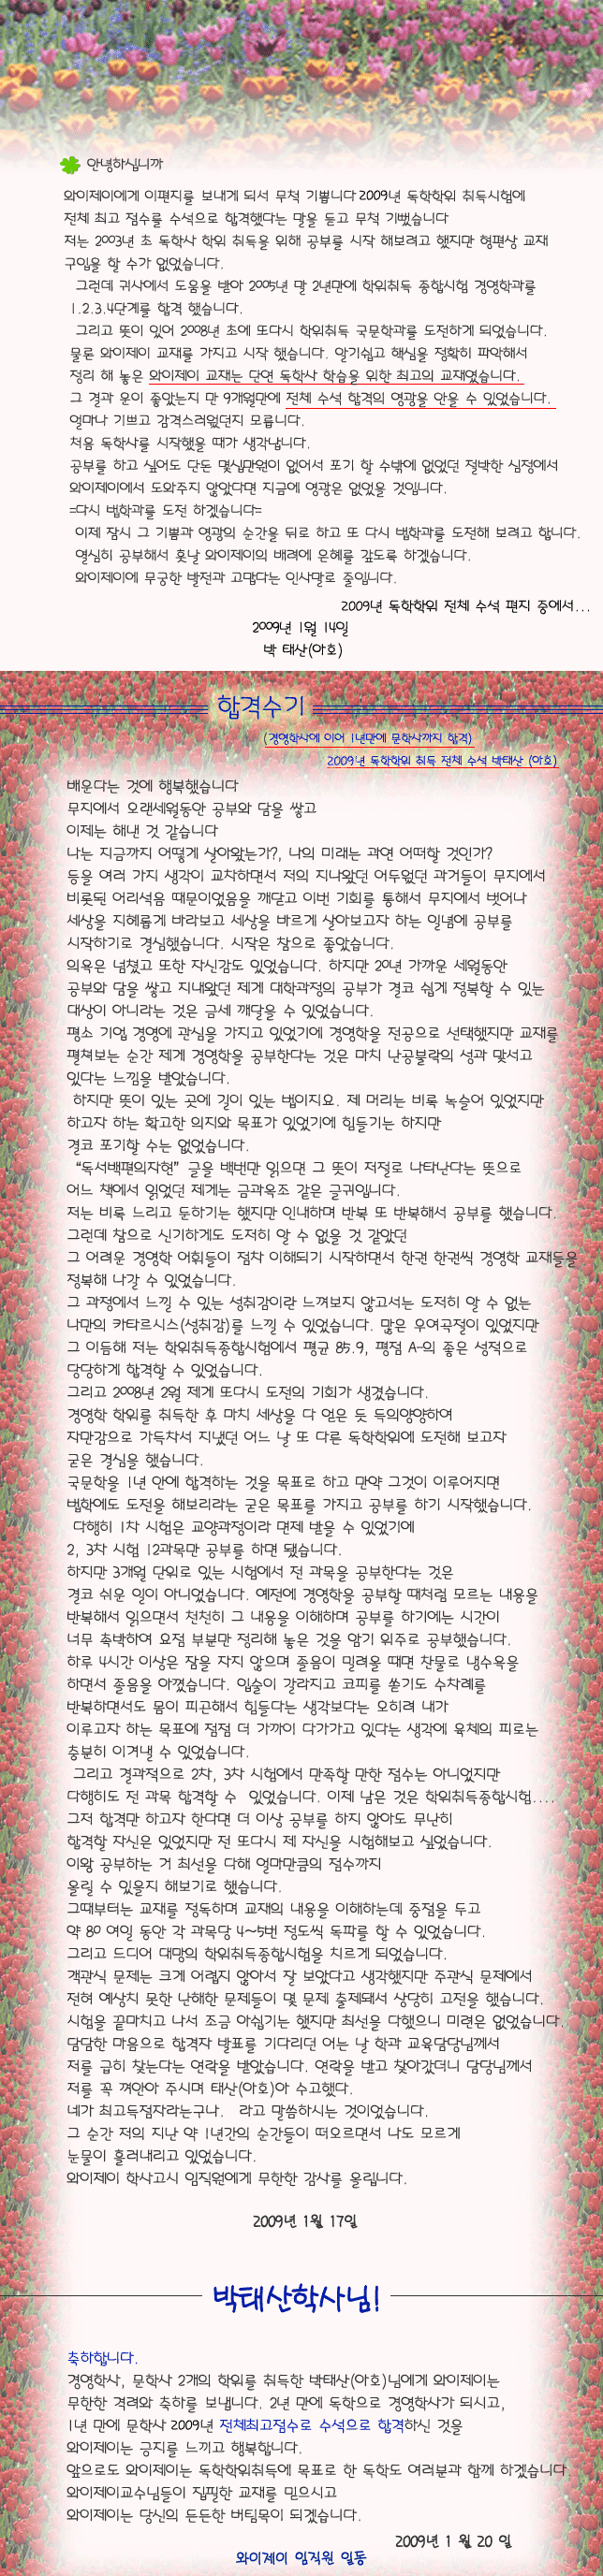 안녕하십니까
와이제이에게 이편지를 보내게 되서 무척 기쁩니다 2009년 독학학위 취득시험에
전체 최고 점수를 수석으로 합격했다는 말을 듣고 무척 기뻤습니다
저는 2003년 초 독학사 학위 취득을 위해 공부를 시작 해보려고 했지만 형편상 교재
구입을 할 수가 없었습니다.
그런데 귀사에서 도움을 받아 2005년 말 2년만에 학위취득 종합시험 경영학과를
1.2.3.4단계를 합격 했습니다.
그리고 뜻이 있어 2008년 초에 또다시 학위취득 국문학과를 도전하게 되었습니다.
물론 와이제이 교재를 가지고 시작 했습니다. 알기쉽고 핵심을 정확히 파악해서
정리 해 놓은 와이제이 교재는 단연 독학사 학습을 위한 최고의 교재였습니다.
그 결과 운이 좋았는지 만 9개월만에 전체 수석 합격의 영광을 안을 수 있었습니다.
얼마나 기쁘고 감격스러웠던지 모릅니다.
처음 독학사를 시작했을 때가 생각납니다.
공부를 하고 싶어도 단돈 몇십만원이 없어서 포기 할 수밖에 없었던 절박한 심정에서
와이제이에서 도와주지 않았다면 지금에 영광은 없었을 것입니다.
=다시 법학과를 도전 하겠습니다=
이제 잠시 그 기쁨과 영광의 순간을 뒤로 하고 또 다시 법학과를 도전해 보려고 합니다.
열심히 공부해서 훗날 와이제이의 배려에 은혜를 갚도록 하겠습니다.
와이제이에 무궁한 발전과 고맙다는 인사말로 줄입니다.
2009년 독학학위 전체 수석 편지 중에서...
2009년 1월 14일
박 태산(아호)
합격수기
(경영학사에 이어 1년만에 문학사까지 합격)
2009년 독학학위 취득 전체 수석 박태산 (아호)
배운다는 것에 행복했습니다
무지에서 오랜세월동안 공부와 담을 쌓고
이제는 해낸 것 같습니다
나는 지금까지 어떻게 살아왔는가?, 나의 미래는 과연 어떠할 것인가?
등을 여러 가지 생각이 교차하면서 저의 지나왔던 어두웠던 과거들이 무지에서
비롯된 어리석음 때문이었음을 깨닫고 이번 기회를 통해서 무지에서 벗어나
세상을 지혜롭게 바라보고 세상을 바르게 살아보고자 하는 일념에 공부를
시작하기로 결심했습니다. 시작은 참으로 좋았습니다.
의욕은 넘쳤고 또한 자신감도 있었습니다. 하지만 20년 가까운 세월동안
공부와 담을 쌓고 지내왔던 제게 대학과정의 공부가 결코 쉽게 정복할 수 있는
대상이 아니라는 것은 금세 깨달을 수 있었습니다.
평소 기업 경영에 관심을 가지고 있었기에 경영학을 전공으로 선택했지만 교재를
펼쳐보는 순간 제게 경영학을 공부한다는 것은 마치 난공불락의 성과 맞서고
있다는 느낌을 받았습니다.
하지만 뜻이 있는 곳에 길이 있는 법이지요. 제 머리는 비록 녹슬어 있었지만
하고자 하는 확고한 의지와 목표가 있었기에 힘들기는 하지만
결코 포기할 수는 없었습니다.
“독서백편의자현” 글을 백번만 읽으면 그 뜻이 저절로 나타난다는 뜻으로
어느 책에서 읽었던 제게는 금과옥조 같은 글귀입니다.
저는 비록 느리고 둔하기는 했지만 인내하며 반복 또 반복해서 공부를 했습니다.
그런데 참으로 신기하게도 도저히 알 수 없을 것 같았던
그 어려운 경영학 어휘들이 점차 이해되기 시작하면서 한권 한권씩 경영학 교재들을
정복해 나갈 수 있었습니다.
그 과정에서 느낄 수 있는 성취감이란 느껴보지 않고서는 도저히 알 수 없는
나만의 카타르시스(성취감)를 느낄 수 있었습니다. 많은 우여곡절이 있었지만
그 이듬해 저는 학위취득종합시험에서 평균 85.9, 평점 A-의 좋은 성적으로
당당하게 합격할 수 있었습니다.
그리고 2008년 2월 제게 또다시 도전의 기회가 생겼습니다.
경영학 학위를 취득한 후 마치 세상을 다 얻은 듯 득의양양하여
자만감으로 가득차서 지냈던 어느 날 또 다른 독학학위에 도전해 보고자
굳은 결심을 했습니다.
국문학을 1년 안에 합격하는 것을 목표로 하고 만약 그것이 이루어지면
법학에도 도전을 해보리라는 굳은 목표를 가지고 공부를 하기 시작했습니다.
다행히 1차 시험은 교양과정이라 면제 받을 수 있었기에
2, 3차 시험 12과목만 공부를 하면 됐습니다.
하지만 3개월 단위로 있는 시험에서 전 과목을 공부한다는 것은
결코 쉬운 일이 아니었습니다. 예전에 경영학을 공부할 때처럼 모르는 내용을
반복해서 읽으면서 천천히 그 내용을 이해하며 공부를 하기에는 시간이
너무 촉박하여 요점 부분만 정리해 놓은 것을 암기 위주로 공부했습니다.
하루 4시간 이상은 잠을 자지 않으며 졸음이 밀려올 때면 찬물로 냉수욕을
하면서 졸음을 아꼈습니다. 입술이 갈라지고 코피를 쏟기도 수차례를
반복하면서도 몸이 피곤해서 힘들다는 생각보다는 오히려 내가
이루고자 하는 목표에 점점 더 가까이 다가가고 있다는 생각에 육체의 피로는
충분히 이겨낼 수 있었습니다.
그리고 결과적으로 2차, 3차 시험에서 만족할 만한 점수는 아니었지만
다행히도 전 과목 합격할 수 있었습니다. 이제 남은 것은 학위취득종합시험....
그저 합격만 하고자 한다면 더 이상 공부를 하지 않아도 무난히
합격할 자신은 있었지만 전 또다시 제 자신을 시험해보고 싶었습니다.
이왕 공부하는 거 최선을 다해 얼마만큼의 점수까지
올릴 수 있을지 해보기로 했습니다.
그때부터는 교재를 정독하며 교재의 내용을 이해하는데 중점을 두고
약 80 여일 동안 각 과목당 4~5번 정도씩 독파를 할 수 있었습니다.
그리고 드디어 대망의 학위취득종합시험을 치르게 되었습니다.
객관식 문제는 크게 어렵지 않아서 잘 보았다고 생각했지만 주관식 문제에서
전혀 예상치 못한 난해한 문제들이 몇 문제 출제돼서 상당히 고전을 했습니다.
시험을 끝마치고 나서 조금 아쉽기는 했지만 최선을 다했으니 미련은 없었습니다.
담담한 마음으로 합격자 발표를 기다리던 어는 날 학과 교육담당님께서
저를 급히 찾는다는 연락을 받았습니다. 연락을 받고 찾아갔더니 담당님께서
저를 꼭 껴안아 주시며 태산(아호)아 수고했다.
네가 최고득점자라는구나. 라고 말씀하시는 것이었습니다.
그 순간 저의 지난 약 1년간의 순간들이 떠오르면서 나도 모르게
눈물이 흘러내리고 있었습니다.
와이제이 학사고시 임직원에게 무한한 감사를 올립니다.
2009년 1월 17일
박태산학사님!
축하합니다.
경영학사, 문학사 2개의 학위를 취득한 박태산(아호)님에게 와이제이는
무한한 격려와 축하를 보냅니다. 2년 만에 독학으로 경영학사가 되시고,
1년 만에 문학사 2009년 전체최고점수로 수석으로 합격하신 것을
와이제이는 긍지를 느끼고 행복합니다.
앞으로도 와이제이는 독학학위취득에 목표로 한 독학도 여러분과 함께 하겠습니다.
와이제이교수님들이 집필한 교재를 믿으시고
와이제이는 당신의 든든한 버팀목이 되겠습니다.
2009년 1 월 20 일
와이제이 임직원 일동